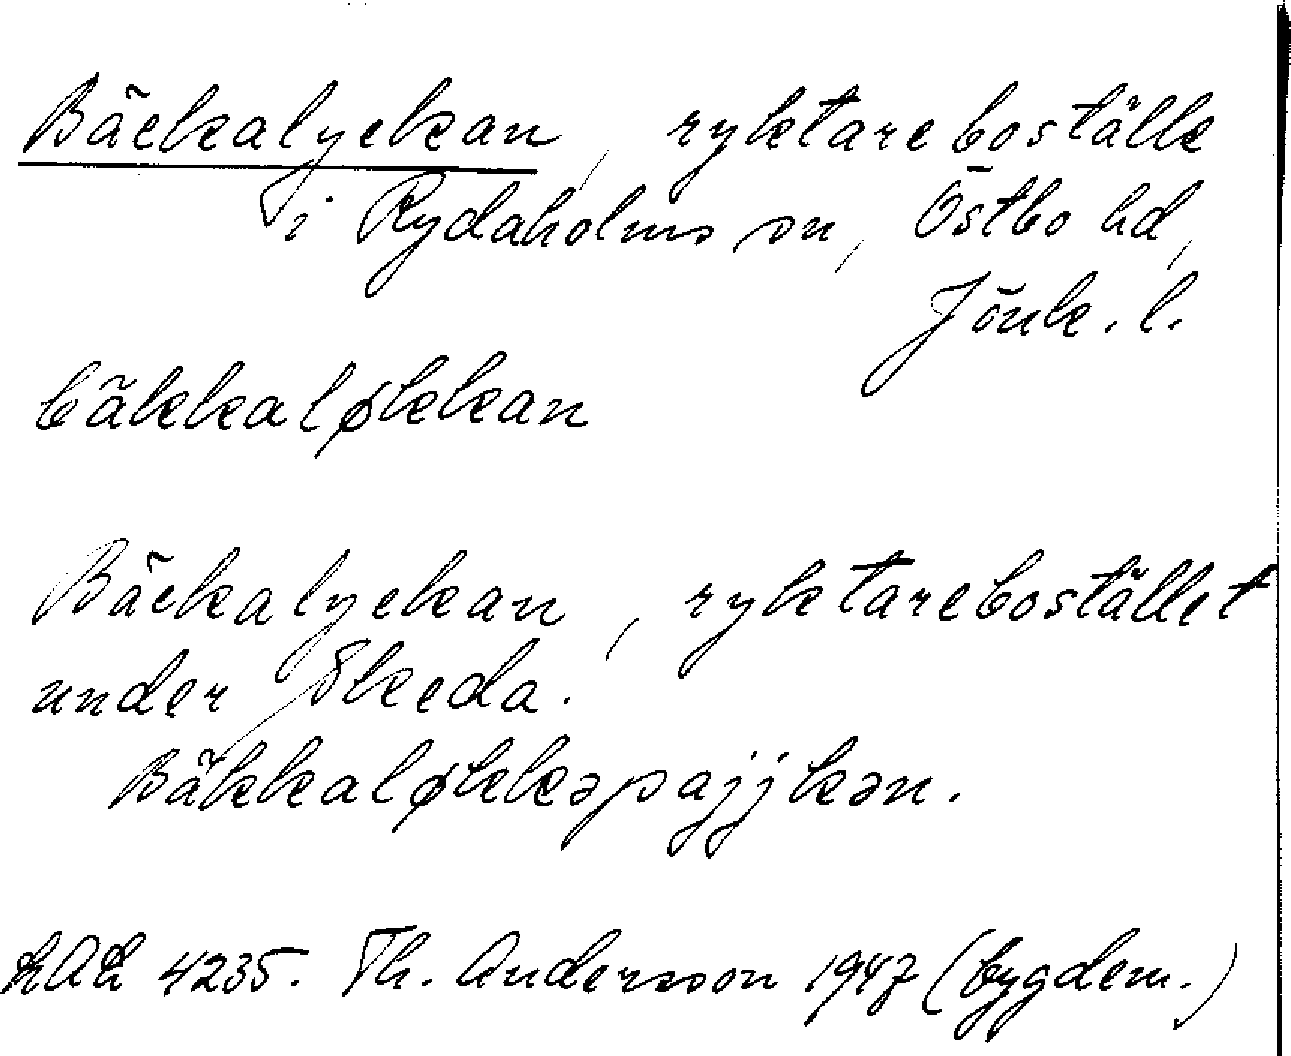 Bäckalyckan, ryktareboställe
i Rydaholms sn, Östbo hd,
Jönk. l.
bäkkaløkkan
Bäckalyckan, ryktarebostället
under Skeda.
Bäkkaløkkəpajjkən.
4235. Th. Andersson 1947 (bygdem.)